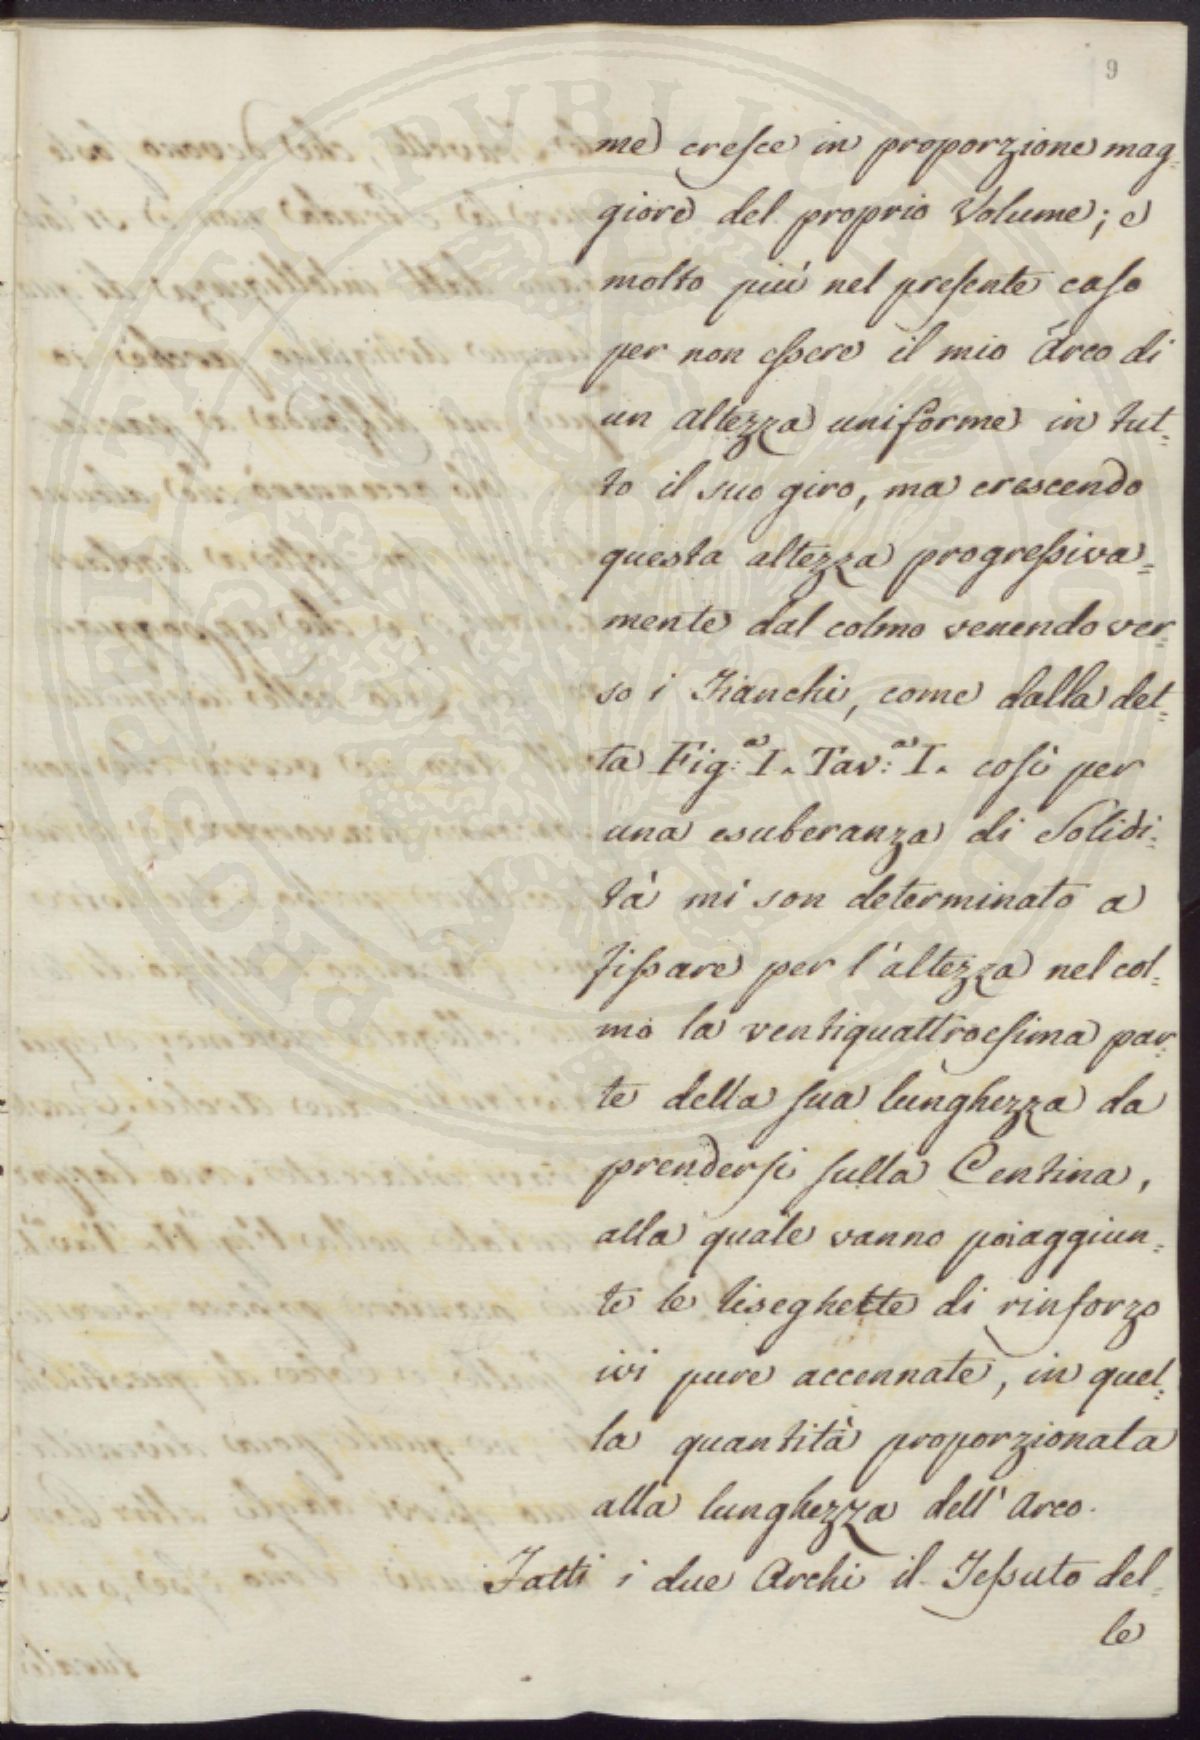 9
me cresce in proporzione mag=
giore del proprio Volume; e
molto più nel presente caso
per non essere il mio Arco di
un altezza uniforme in tut=
to il suo giro, ma crescendo
questa altezza progressiva=
mente dal colmo venendo ver=
so i Fianchi, come dalla det=
ta Fig:ª I. Tav:ª I. così per
una esuberanza di Solidi=
tà mi son determinato a
fissare per l'altezza nel col=
mo la ventiquattroesima par=
te della sua lunghezza da
prendersi sulla Centina,
alla quale vanno poi aggiun=
te le liseghette di rinforzo
ivi pure accennate, in quel=
la quantità proporzionata
alla lunghezza dell' Arco.
Fatti i due Archi il Tessuto del=
le